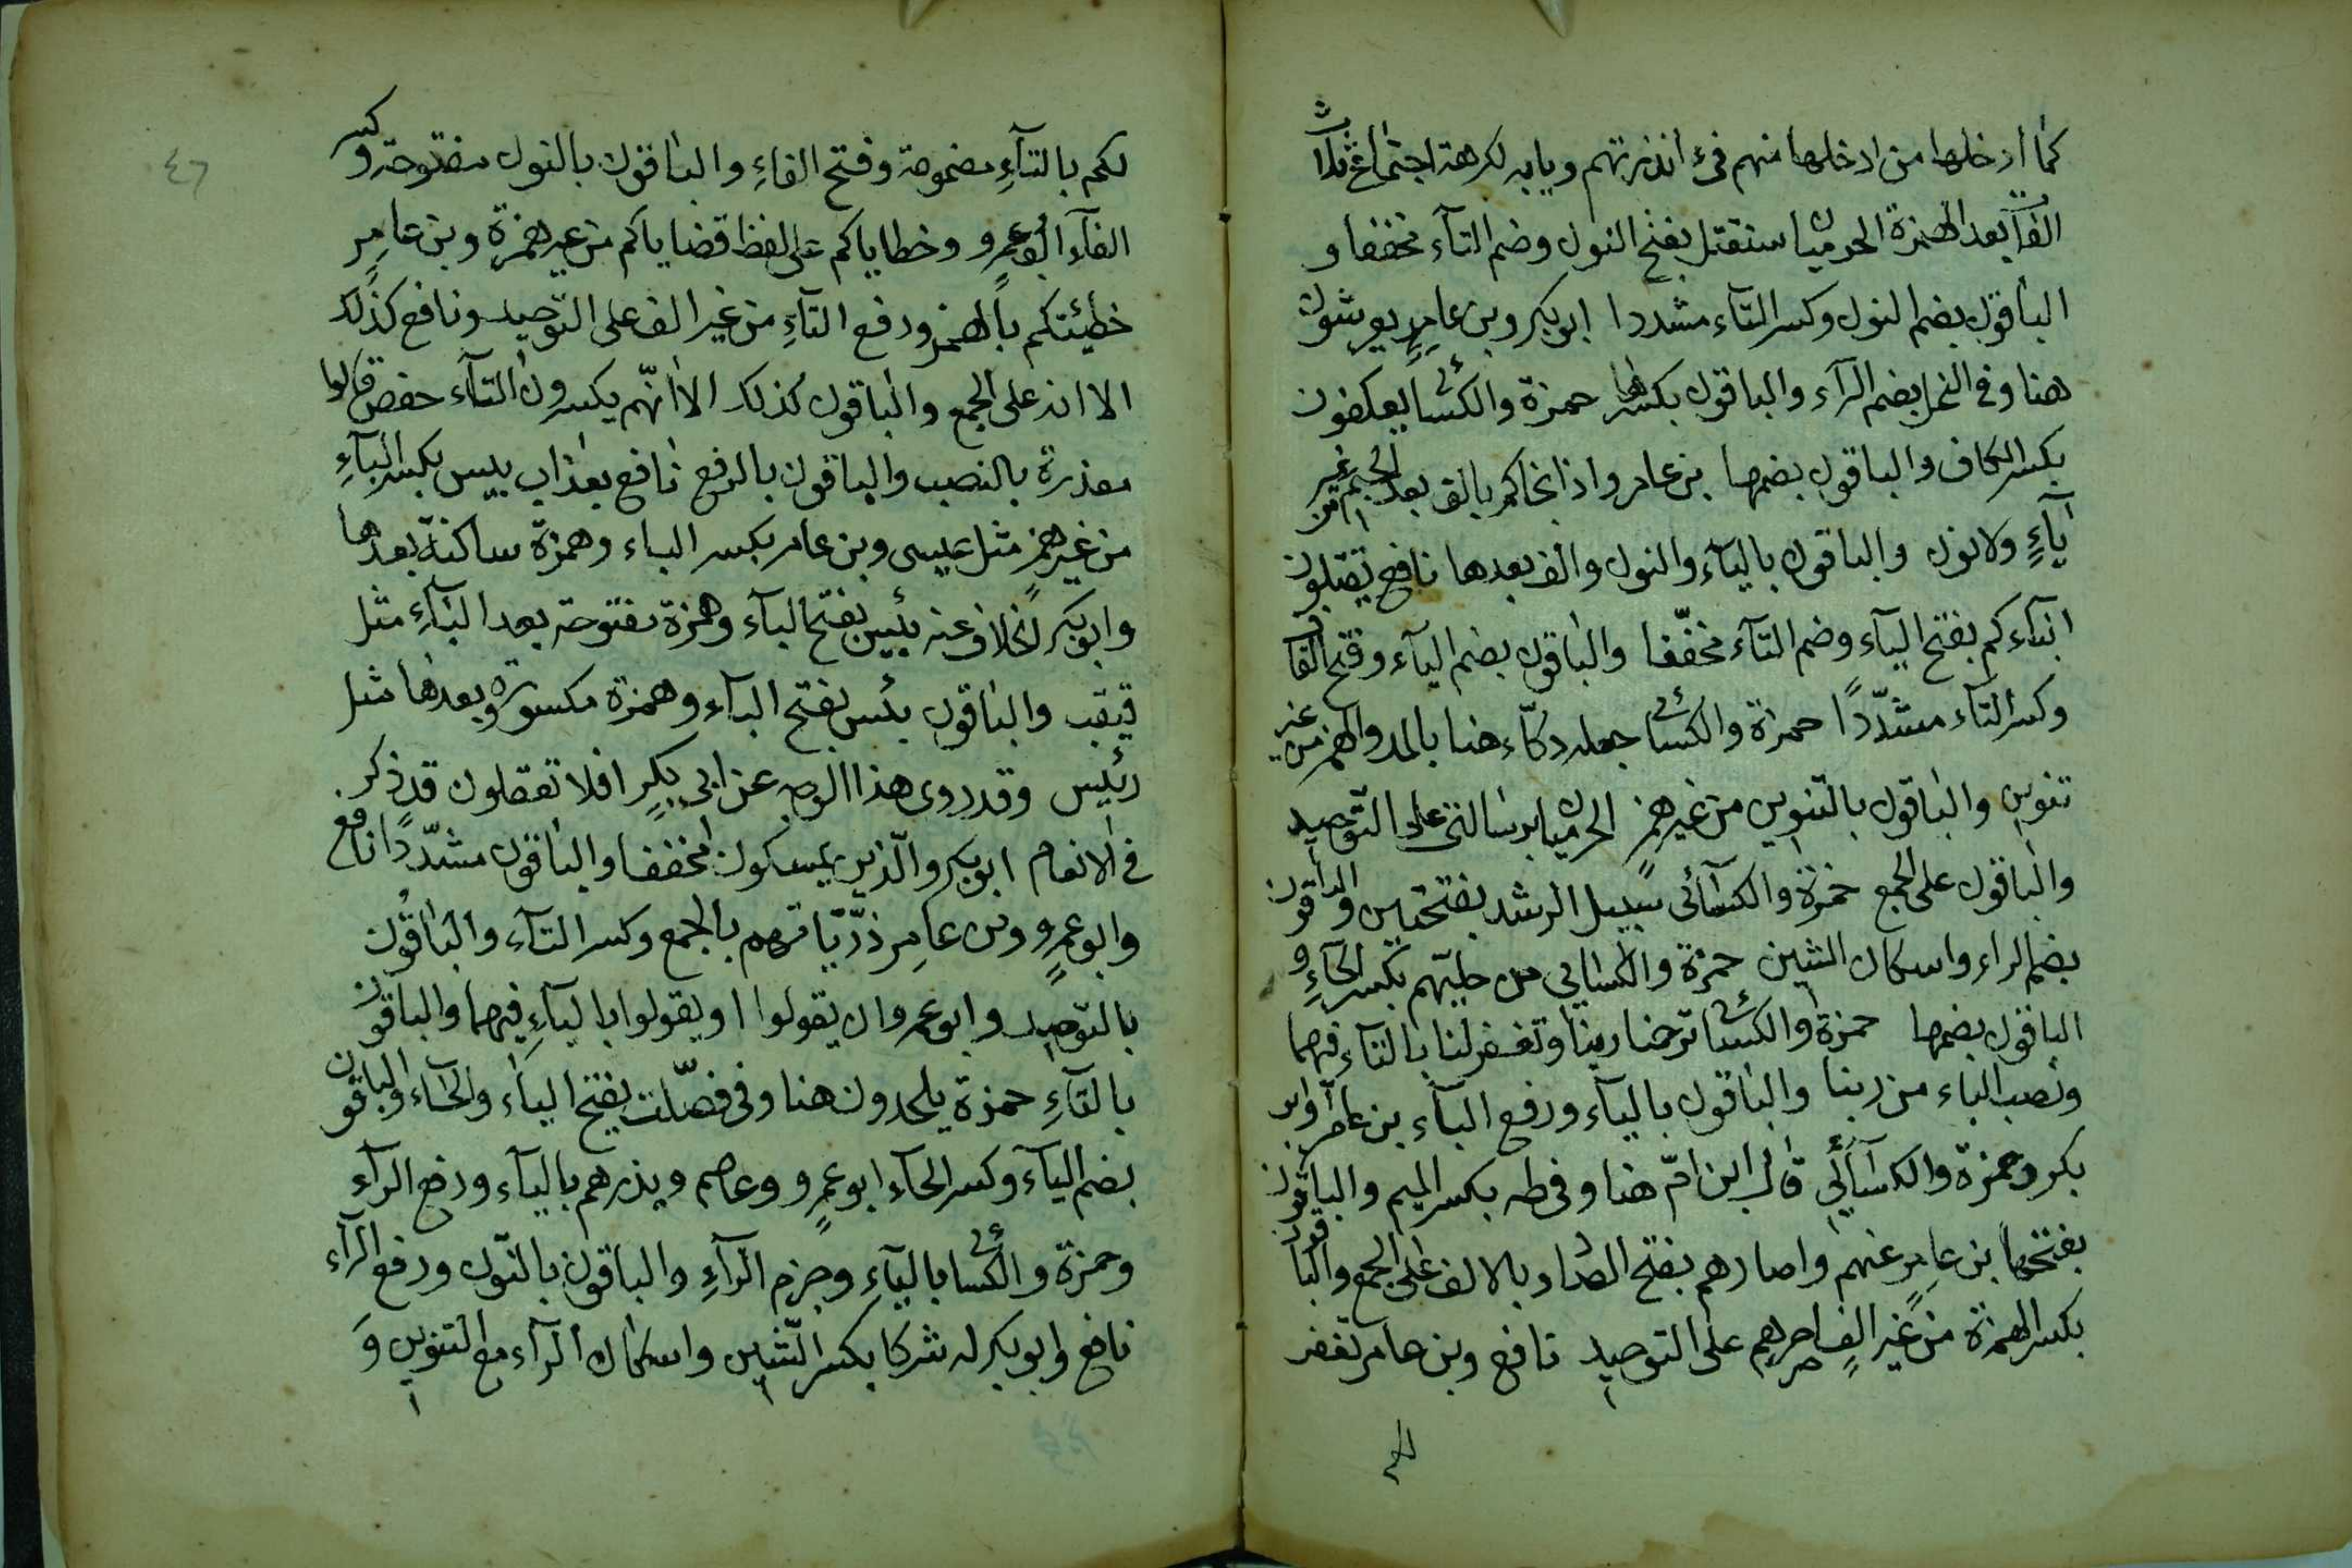 كما ادخلها من ادخلها منهم في ءانذرتهم وبابه لكرهة اجتماع ثلاث
الفات بعد الهمزة الحرميان سنقتل بفتح النون وضم التآء مخففا و
الباقون بضم النون وكسر التآء مشددا ابو بكر وبن عامر يعرشون
هنا وفي النحل بضم الرآء والباقون بكسرها حمزة والكسائي يعكفون
بكسر الكاف والباقون بضمها بن عامر واذ انجاكم بالف بعد الجيم من غير
يآء ولا نون والباقون باليآء والنون والف بعدها نافع يقتلون
ابنآءكم بفتح اليآء وضم التآء مخففا والباقون بضم اليآء وفتح القاف
وكسر التآء مشددًا حمزة والكسائي جعله دكآء هنا بالمد والهمز من غير
تنوين والباقون بالتنوين من غير همز الحرميان برسالتي على التوحيد
والباقون على الجمع حمزة والكسآئي سبيل الرشد بفتحتين والباقون
بضم الراء واسكان الشين حمزة والكسائي من حليهم بكسر الحآء و
الباقون بضمها حمزة والكسائي ترحمنا ربنا وتغفر لنا بالتآء فيهما
ونصب الباء من ربنا والباقون باليآء ورفع البآء بن عامر وابو
بكر وحمزة والكسآئي قال ابن امّ هنا وفي طه بكسر الميم والباقون
بفتحها بن عامر عنهم واصارهم بفتح الصاد بالالف على الجمع والباقون
بكسر الهمزة من غير الف اصرهم على التوحيد نافع وبن عامر تغفر
لكم
٤٦
لكم بالتآء مضمومة وفتح الفاء والباقون بالنون مفتوحة وكسر
الفآء ابو عمرو وخطاياكم على لفظ قضاياكم من غير همزة وبن عامر
خطيئتكم بالهمز ورفع التآء من غير الف على التوحيد ونافع كذلك
الا انه على الجمع والباقون كذلك الا انّهم يكسرون التآء حفص قالوا
معذرة بالنصب والباقون بالرفع نافع بعذاب بيس بكسر البآء
من غير همز مثل عيسى وبن عامر بكسر الباء وهمزة ساكنة بعدها
وابو بكر بخلاف عنه بيئس بفتح البآء وهمزة مفتوحة بعد اليآء مثل
قيقب والباقون بئيس بفتح البآء وهمزة مكسورة وبعدها مثل
رئيس وقد روى هذا الوجه عن ابي بكر افلا تعقلون قد ذكر
في الانعام ابو بكر والّذين يمسكون مخففا والباقون مشدّدًا نافع
وابو عمرو وبن عامر ذرّيّاتهم بالجمع وكسر التآء والباقون
بالتوحيد وابو عمرو ان يقولوا او يقولوا باليآء فيهما والباقون
بالتآء حمزة يلحدون هنا وفي فصّلت بفتح اليآء والحآء والباقون
بضم اليآء وكسر الحآء ابو عمرو وعاصم ويذرهم باليآء ورفع الرآء
وحمزة والكسائي باليآء وجزم الرآء والباقون بالنّون ورفع الرآء
نافع وابو بكر له شركا بكسر الشين واسكان الرآء مع التنوين و